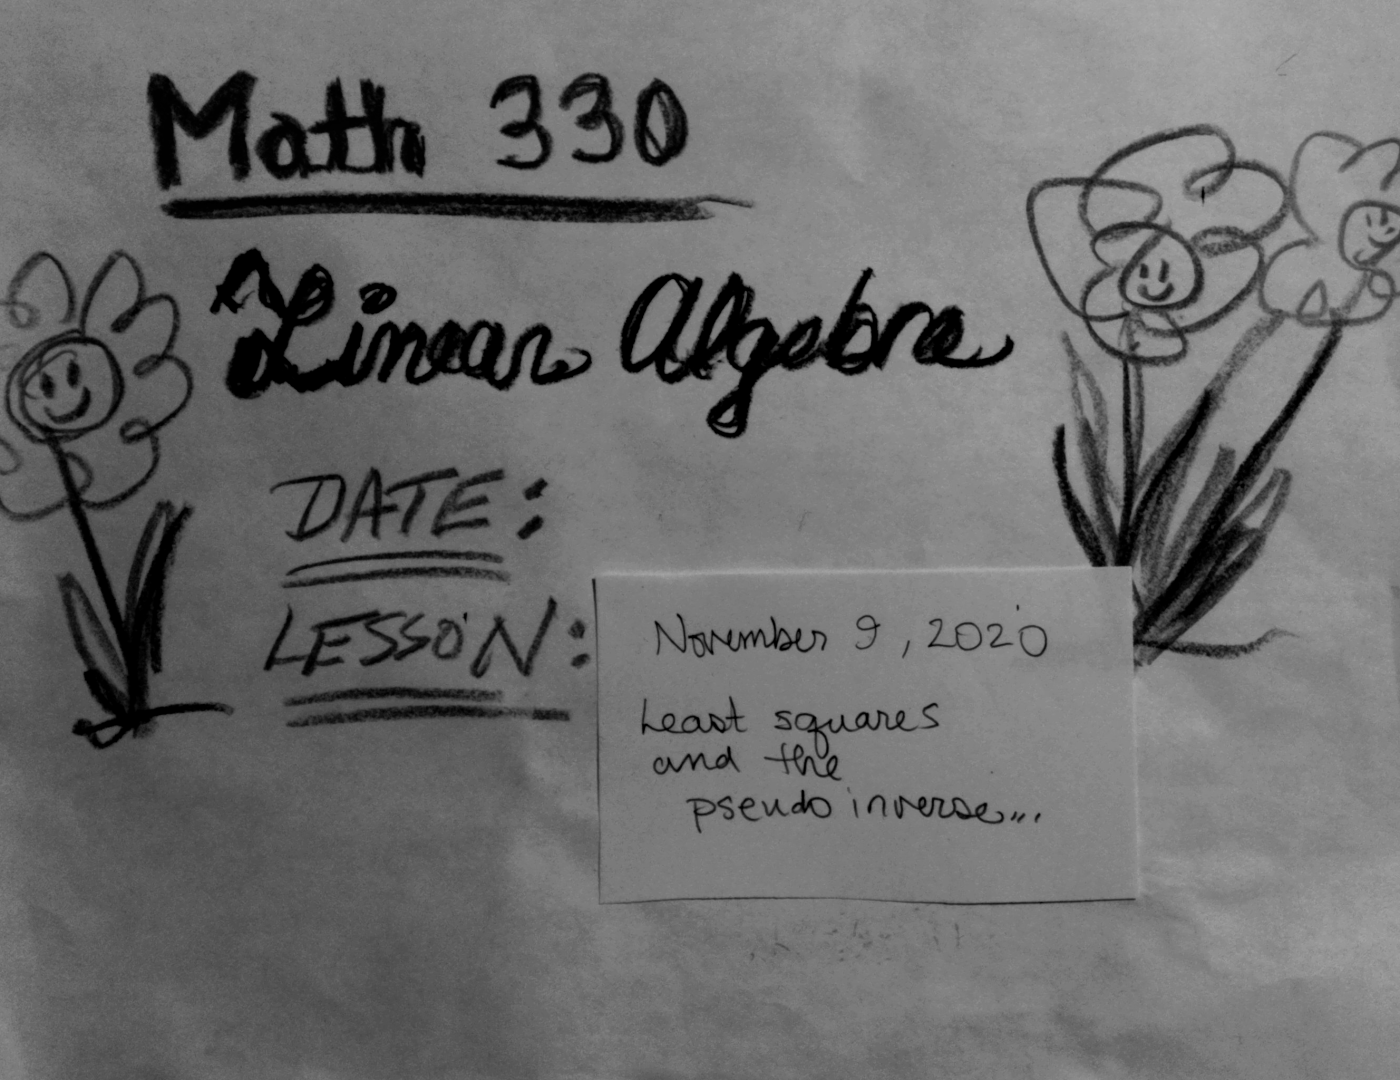 Math 330
Linear Algebra
DATE:
LESSON:
November 9, 2020
Least squares
and the
pseudo inverse...